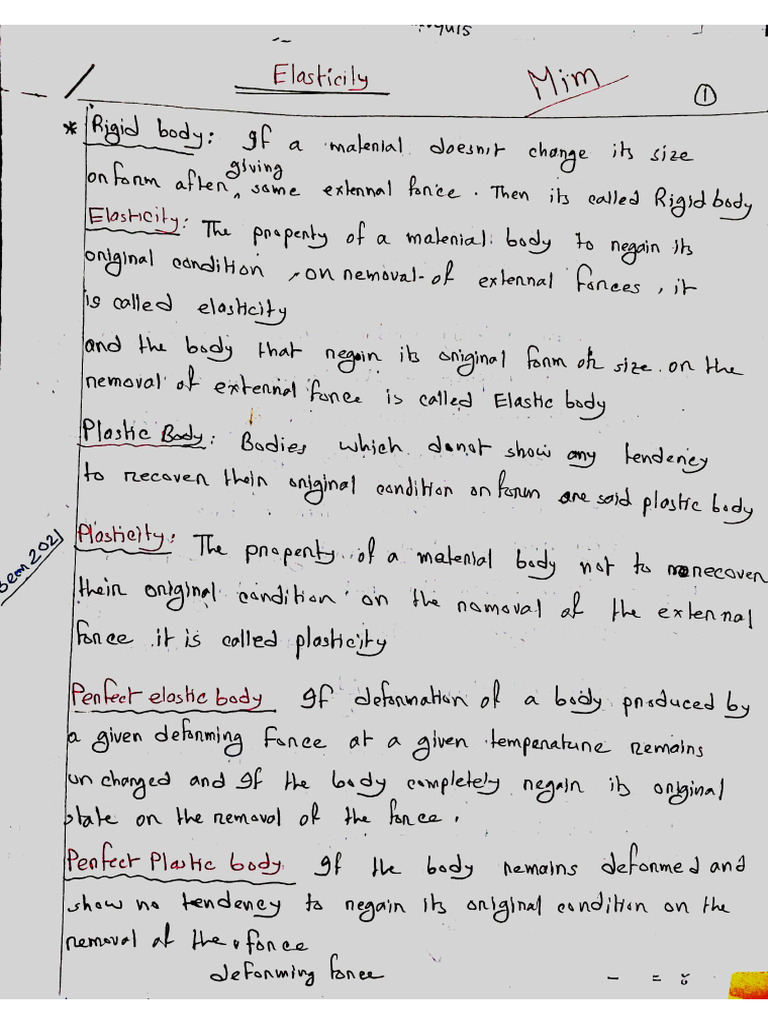 Elasticily
Mim
1
* Rigid body: If a material doesn't change its size
or form after giving some external force. Then its called Rigid body
Elasticity: The property of a material body to regain its
original condition, on removal of external forces, it
is called elasticity
and the body that regain its original form or size on the
removal of external force is called Elastic body
Plastic Body: Bodies which donot show any tendency
to recover their original condition or form are said plastic body
Plasticity: The property of a material body not to recover
2021
their original condition on the romoval of the external
force it is called plasticity
Perfect elastic body If deformation of a body produced by
a given deforming force at a given temperature remains
unchanged and If the body completely regain its original
state on the removal of the force.
Perfect Plastic body If the body remains deformed and
show no tendency to regain its original condition on the
removal of the force
deforming force